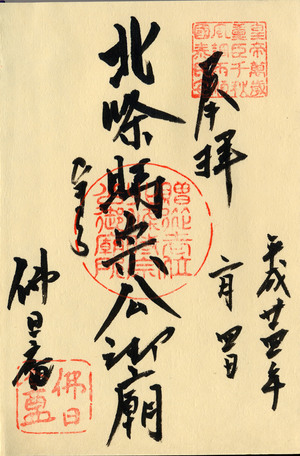 皇帝萬歳
重臣千秋
風調雨順
國泰民安
奉拝
平成廿四年
月四日
北條時宗公御廟
贈從一位
北條時宗
公御廟所
佛日庵
佛日
庵